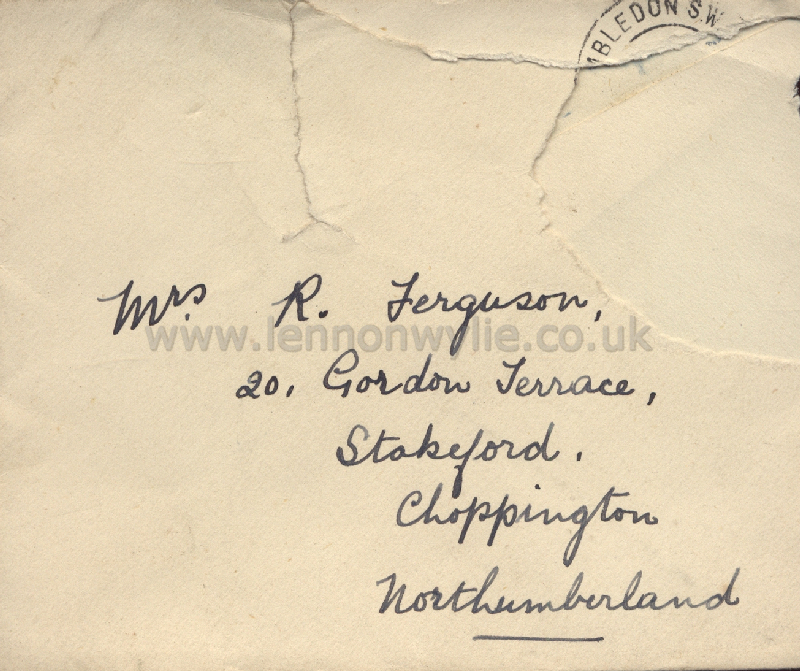 ABLEDON S.W
Mrs. R. Ferguson,
www.lennonwylie.co.uk
20, Gordon Terrace,
Stakeford.
Choppington
Northumberland